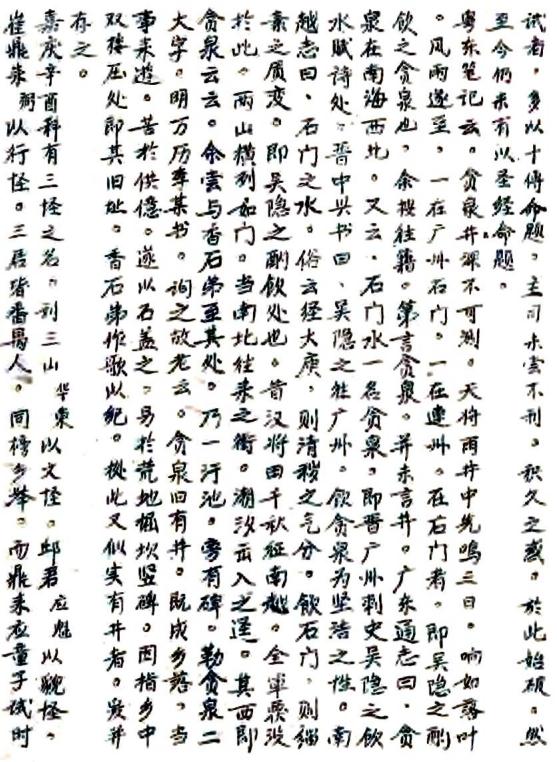 试者，多以十传命题。主司未尝不刊。积久之惑。於此始破。然
至今仍未有以圣经命题。
粤东笔记云。贪泉井深不可测。天将雨井中先鸣三日。响如落叶
。风雨遂至。一在广州石门。一在连州。在石门者，即吴隐之酌
饮之贪泉也。余按往籍。第言贪泉。并未言井。广东通志曰，贪
泉在南海西北。又云，石门水一名贪泉，即晋广州刺史吴隐之饮
水赋诗处。晋中兴书曰，吴隐之往广州。饮贪泉为坚洁之性。南
越志曰，石门之水。俗云经大庾，则清秽之气分。饮石门，则缁
素之质变。即吴隐之酌饮处也。昔汉将田千秋征南越。全军覆没
於此。两山横列如门。当南北往来之街。潮汐云入之迳。其西即
贪泉云云。余尝与香石弟至其处。乃一汙池。旁有碑。勒贪泉二
大字。明万历李某书。询之故老云。贪泉旧有井。既成乡落。当
事来遊。苦於供億。遂以石盖之。易於荒地掘坎竖碑。因指乡中
双榕压处即其旧址。香石弟作歌以纪。据此又似实有井者。爰并
存之。
嘉庆辛酉科有三怪之名。刘三山 华东 以文怪。邱君 应魁 以貌怪。
崔鼎来 弼 以行怪。三居皆番禺人。同榜乡举。而鼎来应童子试时